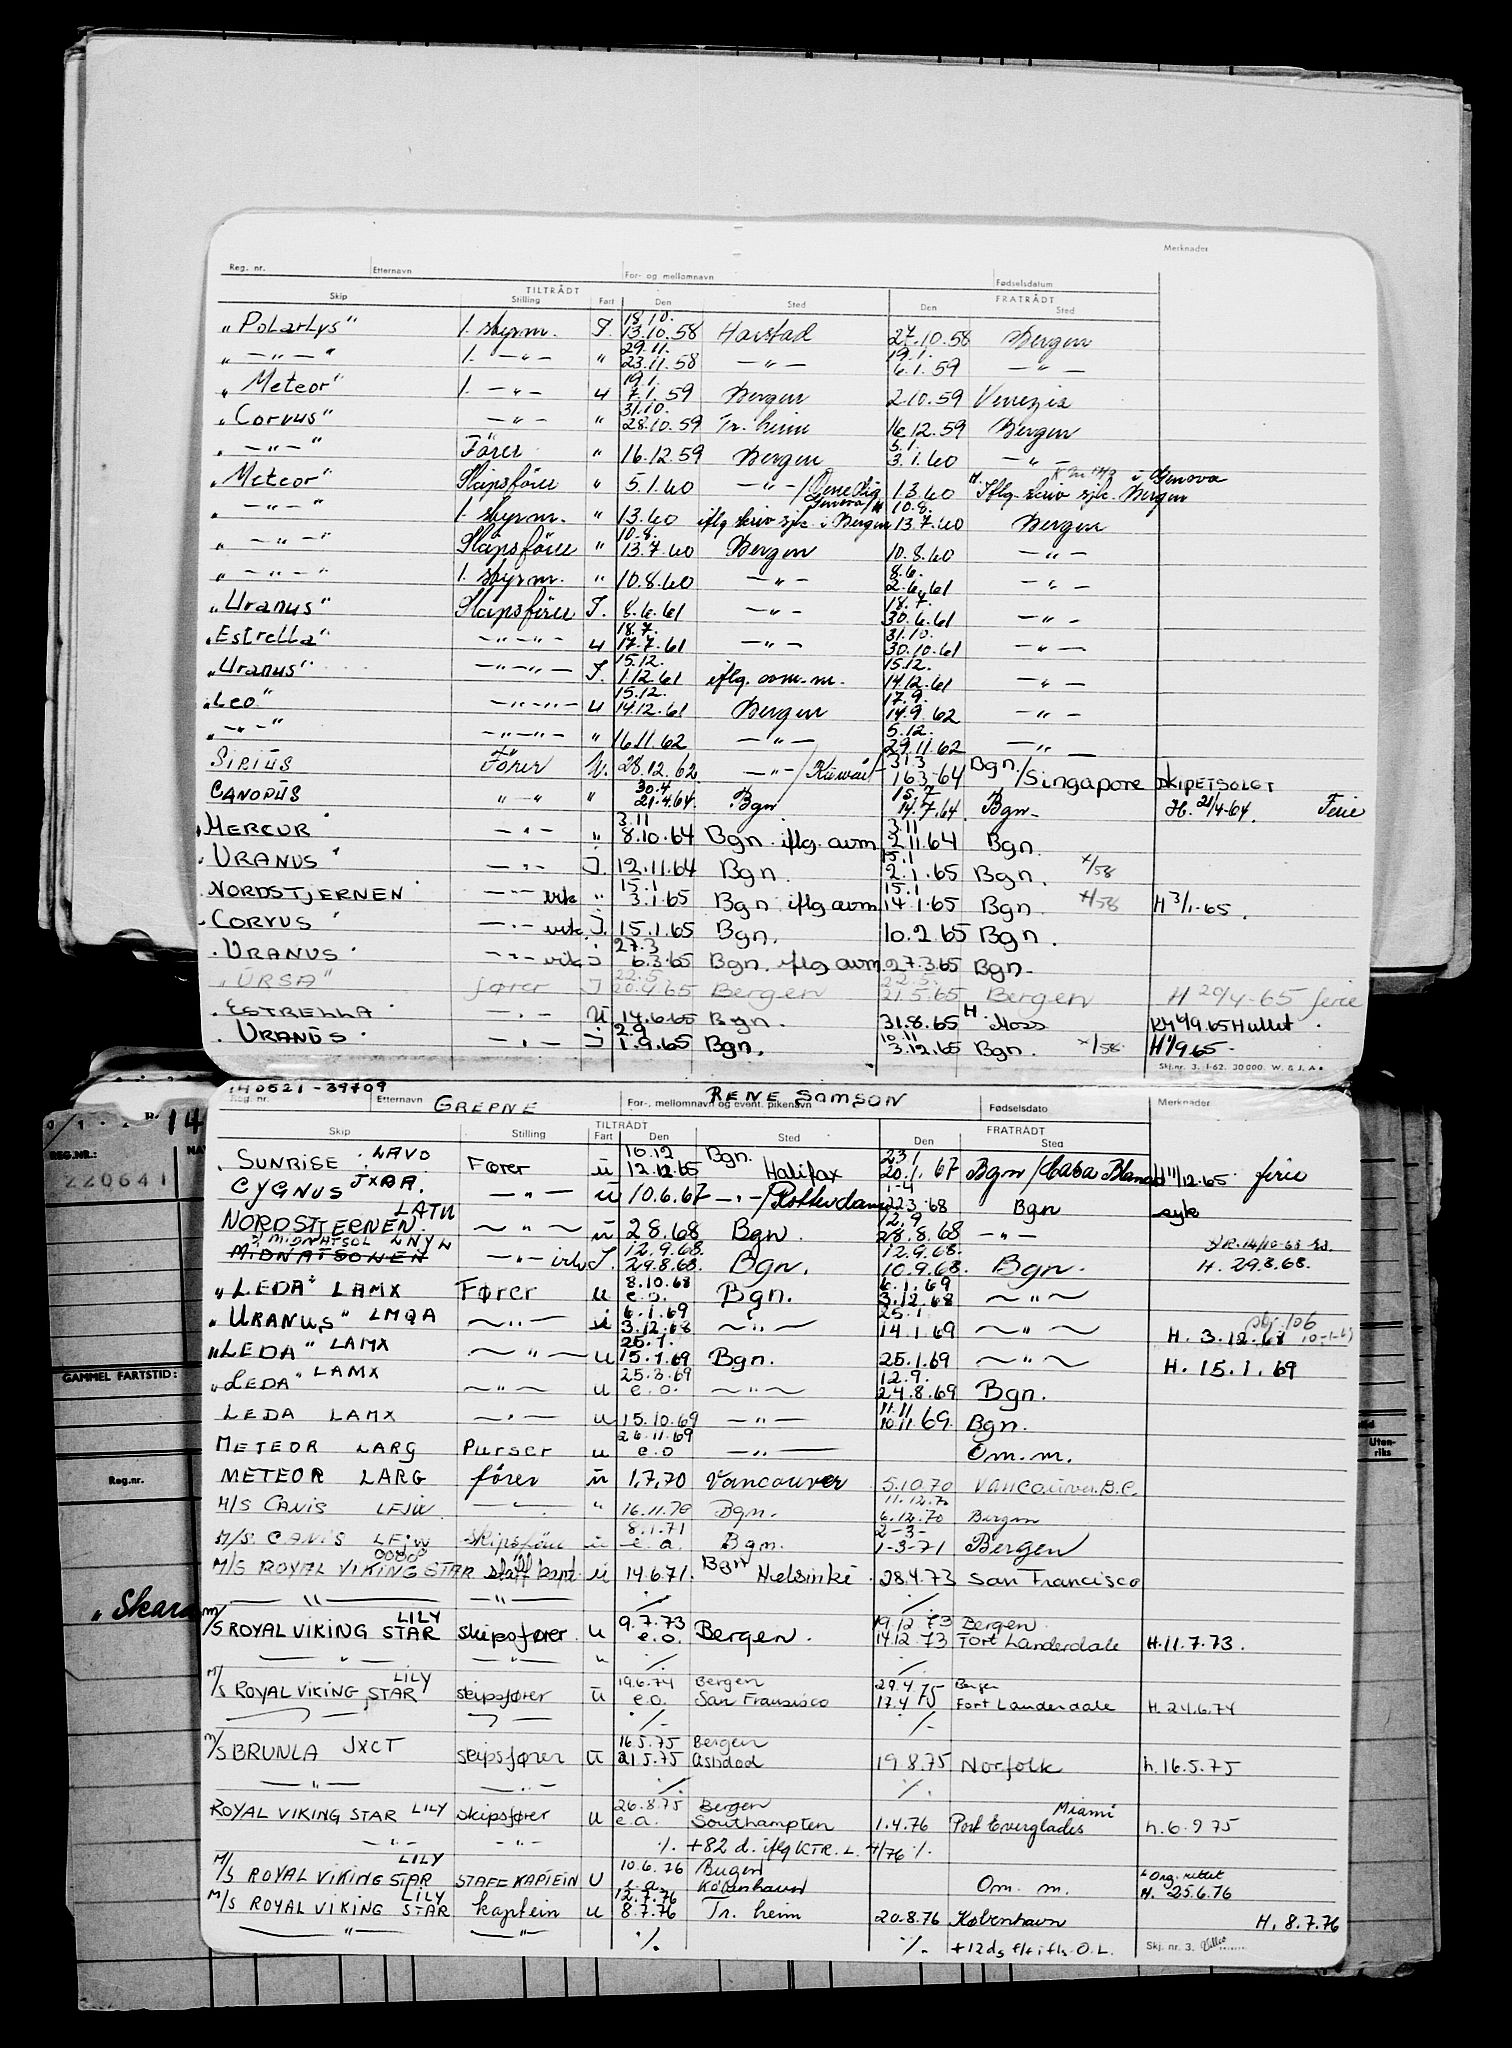 Merknader
Reg. nr. Etternavn For- og mellomnavn Fødselsdatum
TILTRÅDT FRATRÅDT
Skip Stilling Fart Den Sted Den Sted
18.10.
"Polarlys" 1. styrm. I. 13.10.58 Harstad 27.10.58 Bergen
29.11. 19.1.
" — " — " 1. — " — " 23.11.58 — " — 6.1.59 — " —
19.1.
"Meteor" 1. — " — u 7.1.59 Bergen 2.10.59 Venezia
31.10.
"Corvus" — " — " 28.10.59 Tr. heim 16.12.59 Bergen
5.1.
" — " — " Förer " 16.12.59 Bergen 3.1.60 — " —
"Meteor" Skipsförer " 5.1.60 — " — / Venedig 1.3.60 H. Iflg. skriv sjk. Bergen i Genova
Genova/ 10.8.
" — " — " 1. styrm. " 1.3.60 iflg skriv sjk. i Bergen 13.7.60 Bergen
10.8.
" — " — " Skipsförer " 13.7.60 Bergen 10.8.60 — " —
8.6.
" — " — " 1. styrm. " 10.8.60 — " — 2.6.61 — " —
18.7.
"Uranus" Skipsförer I. 8.6.61 — " — 30.6.61 — " —
18.7. 31.10.
"Estrella" — " — " — u 17.7.61 — " — 30.10.61 — " —
15.12. 15.12.
"Uranus" — " — " — I. 1.12.61 iflg. avm. m. 14.12.61 — " —
15.12. 17.9.
"Leo" — " — " — u 14.12.61 Bergen 14.9.62 — " —
5.12.
" — " — " — " — " — " 16.11.62 — " — 29.11.62 — " —
31.3
SIRIUS Förer U. 28.12.62 — " — / Kuwait 16.3.64 Bgn. / Singapore SKIPET SOLGT
30.4 15.7
CANOPUS " — " " 21.4.64. Bgn 14.7.64 Bgn H. 21/4-64. Ferie
3.11 3.11
"MERCUR" — " — " 8.10.64 Bgn. iflg. avm. 2.11.64 Bgn.
15.1
"URANUS" — " — I. 12.11.64 Bgn. 2.1.65 Bgn. x/58
15.1 15.1
"NORDSTJERNEN" — " — vik " 3.1.65 Bgn iflg avm. 14.1.65 Bgn. x/58 H 3/1-65.
"CORVUS" — " — vik. I. 15.1.65 Bgn. 10.2.65 Bgn.
27.3
"URANUS" — " — vik I 6.3.65 Bgn. iflg avm. 27.3.65 Bgn.
22.5 22.5.
"URSA" förer I 20.4.65 Bergen 21.5.65 Bergen H 20/4-65 ferie
"ESTRELLA" — " — U 14.6.65 Bgn. 31.8.65 H. Moss
2.9 10.11
"URANUS" — " — I 1.9.65 Bgn. 3.12.65 Bgn. x/58 H 1/9 65.
Skj.nr. 3. 1-62. 30 000. W. & J. A s
140521-39709 RENE SAMSON
Reg. nr. Etternavn GREPNE For-, mellomnavn og event. pikenavn Fødselsdato Merknader
TILTRÅDT FRATRÅDT
Skip Stilling Fart Den Sted Den Sted
16.12 Bgn. 23.1
"SUNRISE" LAVO Fører u 12.12.65 Halifax 20.1.67 Bgn/Casa Blanca H 11/12-65 ferie
1-4
CYGNUS JXAA. — " — u 10.6.67 — " — / Rotterdam 22.3.68 Bgn syk
LATU 12.9
NORDSTJERNEN. — " — u 2.8.68 Bgn. 28.8.68 — " —
MIDNATSOL LNYW 12.9.68. 12.9.68.
MIDNATSONEN — " — vik I. 29.8.68. Bgn. 10.9.68. Bgn. H. 29.8.68.
8.10.68 6.1.69
"LEDA" LAMX Fører u e.o. Bgn. 3.12.68 — " —
6.1.69 25.1
"URANUS" LMQA — " — i 3.12.68 — " — 14.1.69 — " — H. 3.12.68
25.1.
"LEDA" LAMX — " — u 15.1.69 Bgn. 25.1.69 — " — H. 15.1.69
25.3.69 12.9.
"LEDA" LAMX — " — u e.o. — " — 24.8.69 Bgn.
11.11
LEDA LAMX — " — u 15.10.69 — " — 10.11.69. Bgn.
26.11.69
METEOR LARG Purser u e.o — " — Om. m.
METEOR LARG fører u 1.7.70 Vancouver 5.10.70 Vancouver B.C.
11.12.70
M/S CANIS LFJW. — " — " 16.11.70 Bgn. 6.12.70 Bergen
8.1.71 2-3-
M/S. CANIS LFJW skipsförer u e.a. Bgn. 1-3-71 Bergen
M/S ROYAL VIKING STAR staff kapt. u 14.6.71. Bgn Helsinki 28.4.73 San Francisco
— " — — " — ./. ./.
LILY 9.7.73 19.12.73 Bergen
M/S ROYAL VIKING STAR skipsfører. u e.o. Bergen. 14.12.73 Fort Landerdale H. 11.7.73.
— " — — " — " ./. ./.
LILY 19.6.74 Bergen 29.4.75 Bergen
M/S ROYAL VIKING STAR skipsfører u e.o. San Fransisco 17.4.75 Fort Landerdale H. 24.6.74
— " — — " — ./. ./.
16.5.75 Bergen
M/S BRUNLA JXCT skipsfører u 21.5.75 Ashdod 19.8.75 Norfolk h. 16.5.75
— " — — " — ./. ./.
26.8.75 Bergen Miami
ROYAL VIKING STAR LILY skipsfører u e.a. Southampten 1.4.76 Port Everglades h. 6.9 75
— " — — " — ./. +82 d. iflg KTR. L. 4/76 ./.
LILY 10.6.76 Bergen
M/S ROYAL VIKING STAR STAFF KAPTEIN U e.a. København Om. m. H. 25.6.76
LILY 12.7.76
M/S ROYAL VIKING STAR kaptein u 8.7.76 Tr. heim 20.8.76 København H. 8.7.76
— " — — " — ./. ./. Skj. nr. 3.
REG.NR.:
220641
GAMMEL FARTSTID:
Reg.nr.
"Skara
Uten-
riks